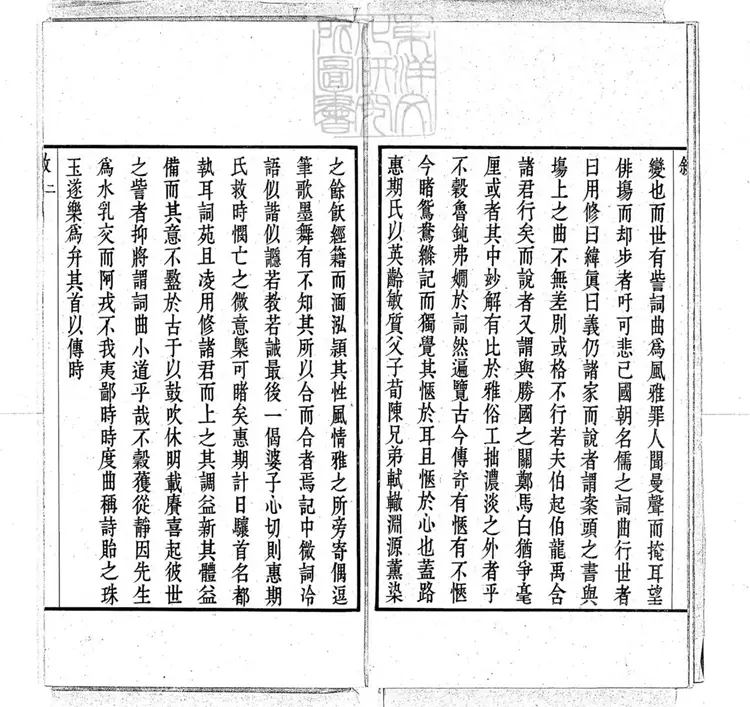 東洋文
化研究
所圖書
敘
變也而世有訾詞曲為風雅罪人聞曼聲而掩耳望
俳場而却步者吁可悲已國朝名儒之詞曲行世者
曰用修曰緯眞曰義仍諸家而說者謂案頭之書與
場上之曲不無差別或格不行若夫伯起伯龍禹舍
諸君行矣而說者又謂與勝國之關鄭馬白猶爭毫
厘或者其中妙解有比於雅俗工拙濃淡之外者乎
不穀魯鈍弗嫺於詞然遍覽古今傳奇有愜有不愜
今睹鴛鴦縧記而獨覺其愜於耳且愜於心也蓋路
惠期氏以英齡敏質父子荀陳兄弟軾轍淵源薰染
之餘飫經籍而湎泓穎其性風情雅之所旁寄偶逗
筆歌墨舞有不知其所以合而合者焉記中微詞冷
語似諧似讔若教若誡最後一偈婆子心切則惠期
氏救時憫亡之微意槩可睹矣惠期計日驤首名都
執耳詞苑且凌用修諸君而上之其調益新其體益
備而其意不盭於古于以鼓吹休明載賡喜起彼世
之訾者抑將謂詞曲小道乎哉不穀獲從靜因先生
為水乳交而阿戎不我夷鄙時時度曲稱詩貽之珠
玉遂樂為弁其首以傳時
敘 二